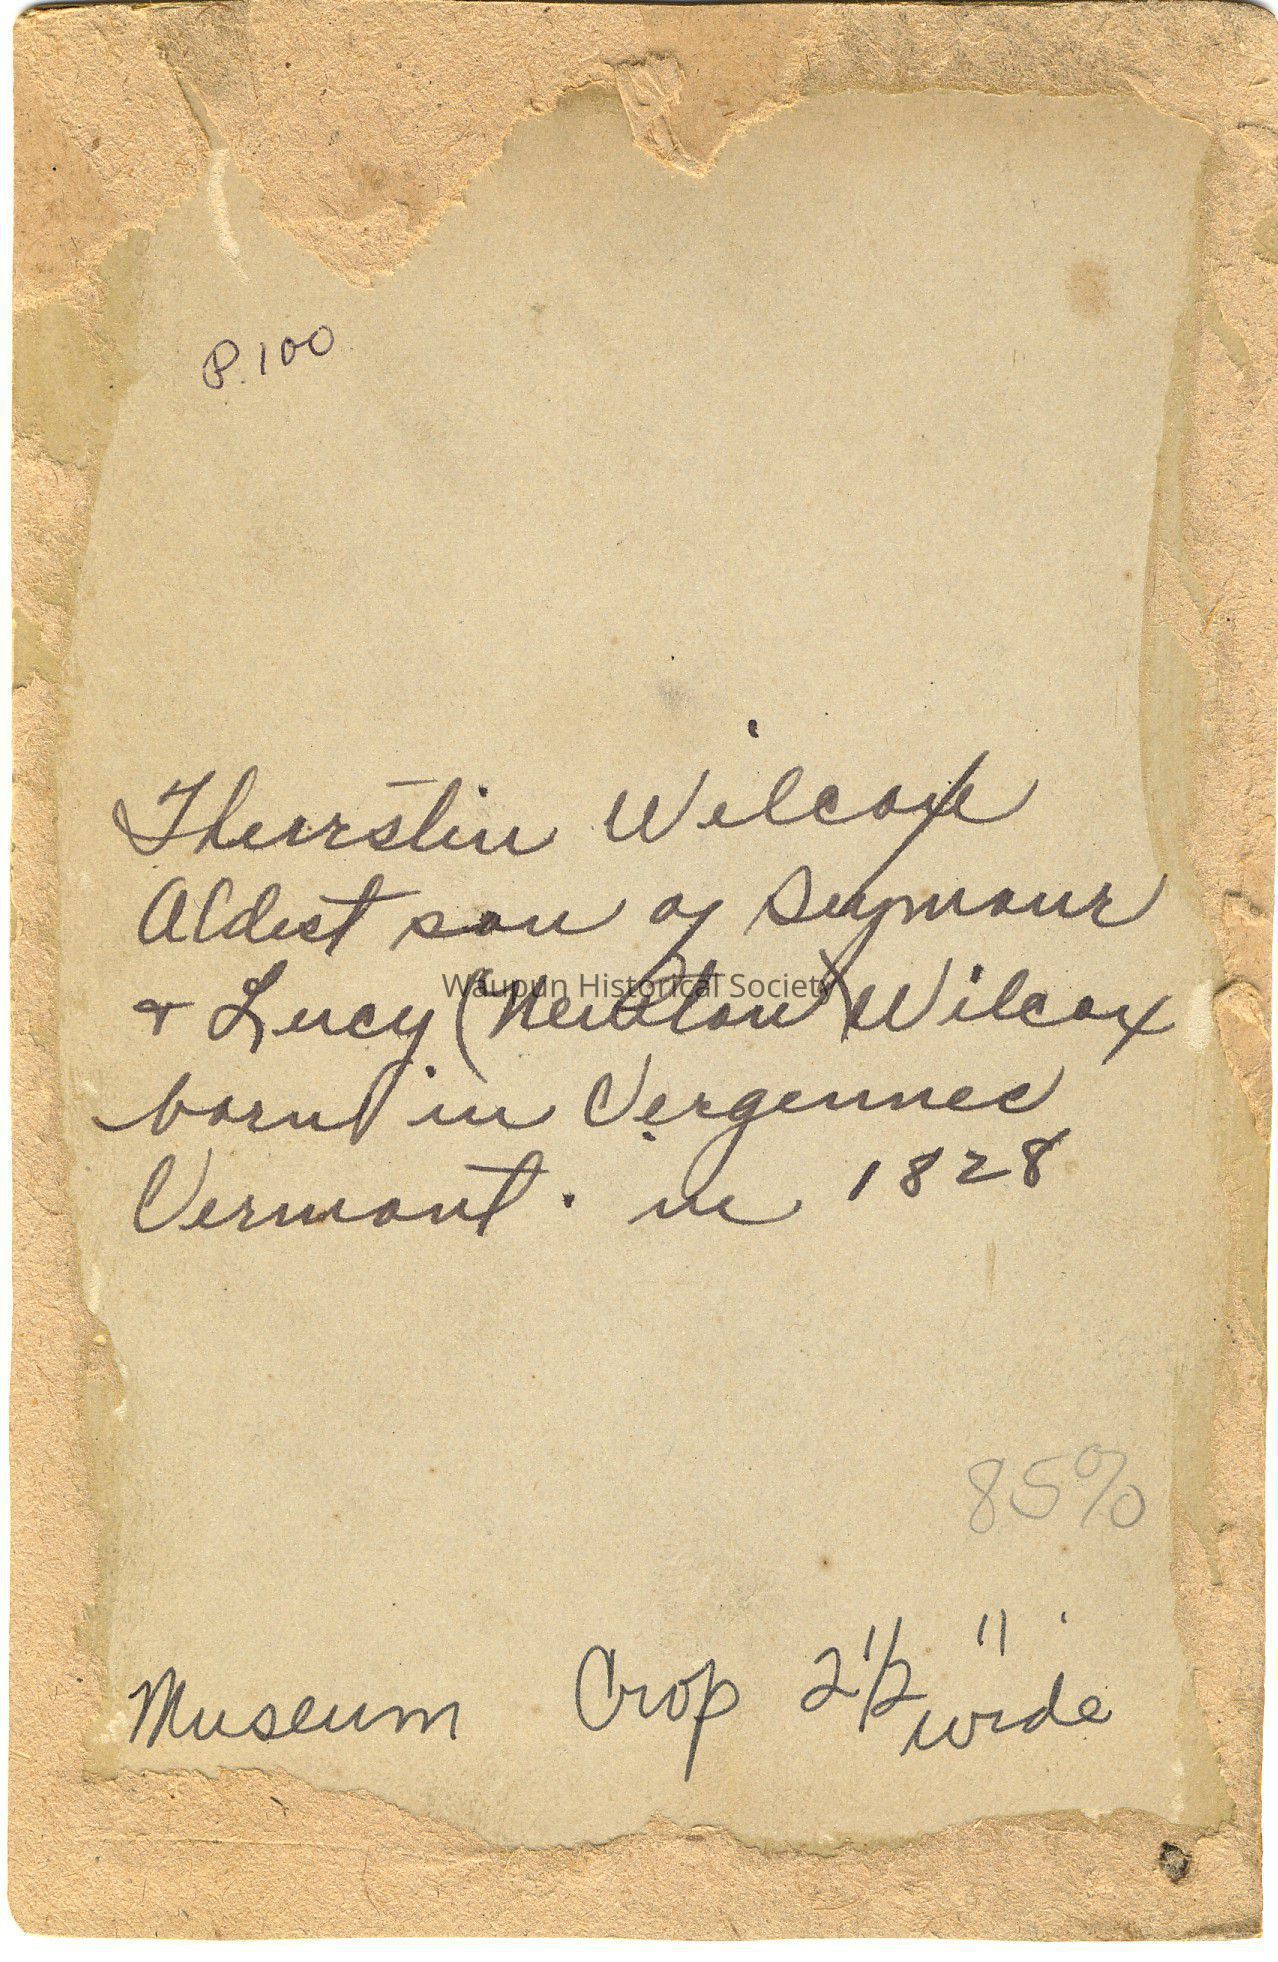 P. 100
Therrstin Wilcox
Oldest son of Seymour
Waupun Historical Society
& Lucy (Newton) Wilcox
born in Vergennes
Vermont. in 1828
85%
Museum Crop 2 1/2" wide